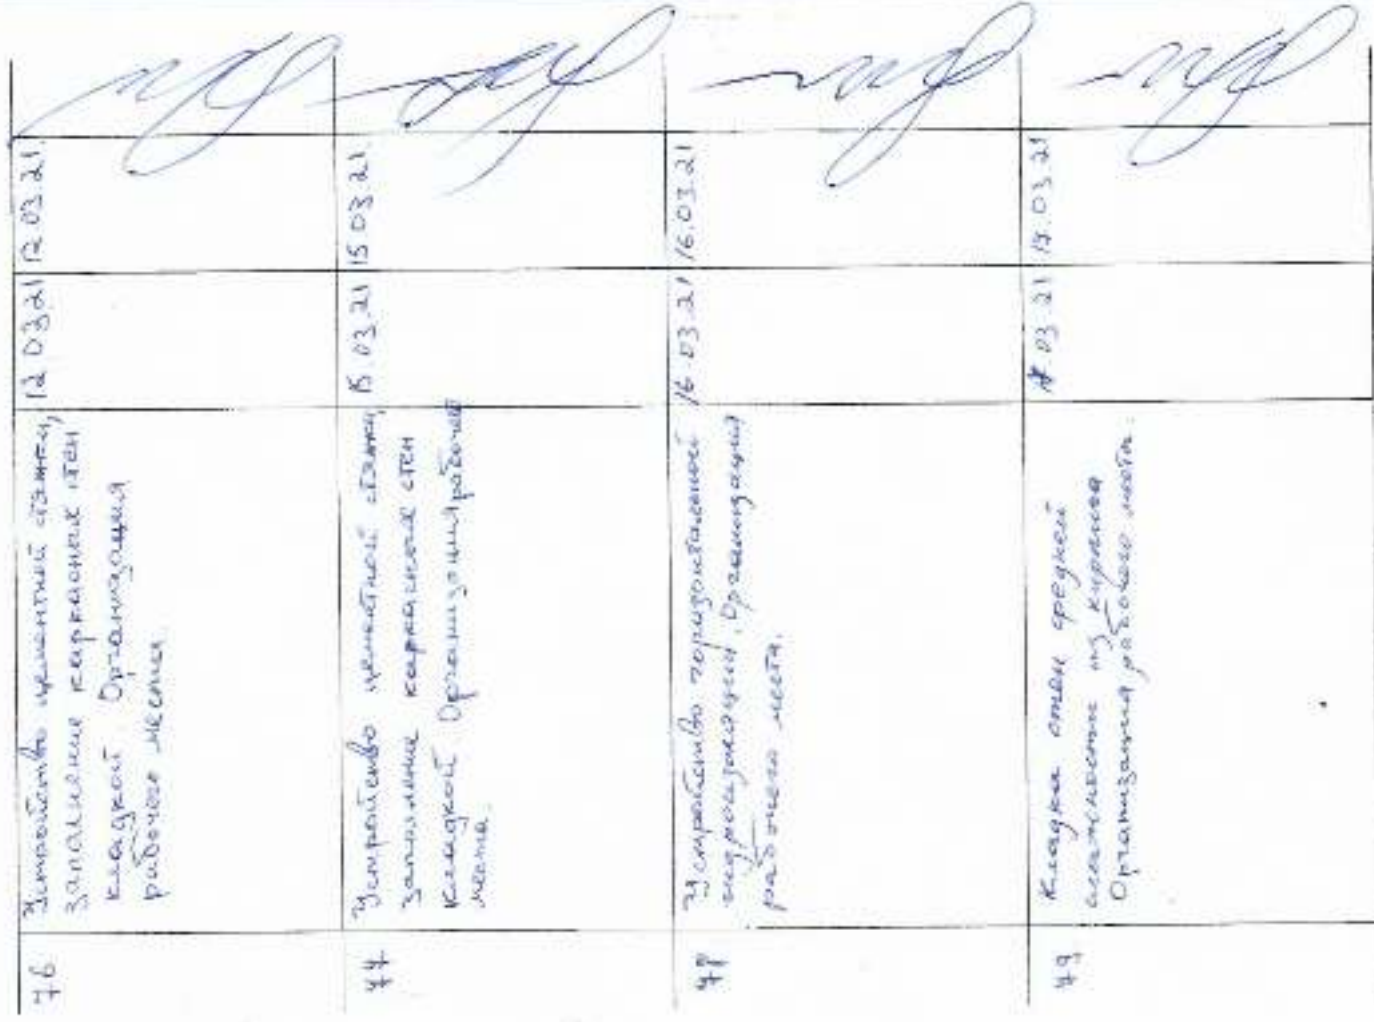 76
Устройство цементной стяжки,
заполнение каркасных стен
кладкой. Организация
рабочего места.
12.03.21
12.03.21.
77
Устройство цементной стяжки,
заполнение каркасных стен
кладкой. Организация рабочего
места.
15.03.21
15.03.21.
78
Устройство горизонтальной
гидроизоляции. Организация
рабочего места.
16.03.21
16.03.21
79
Кладка стен средней
сложности из кирпича
Организация рабочего места.
17.03.21
17.03.21